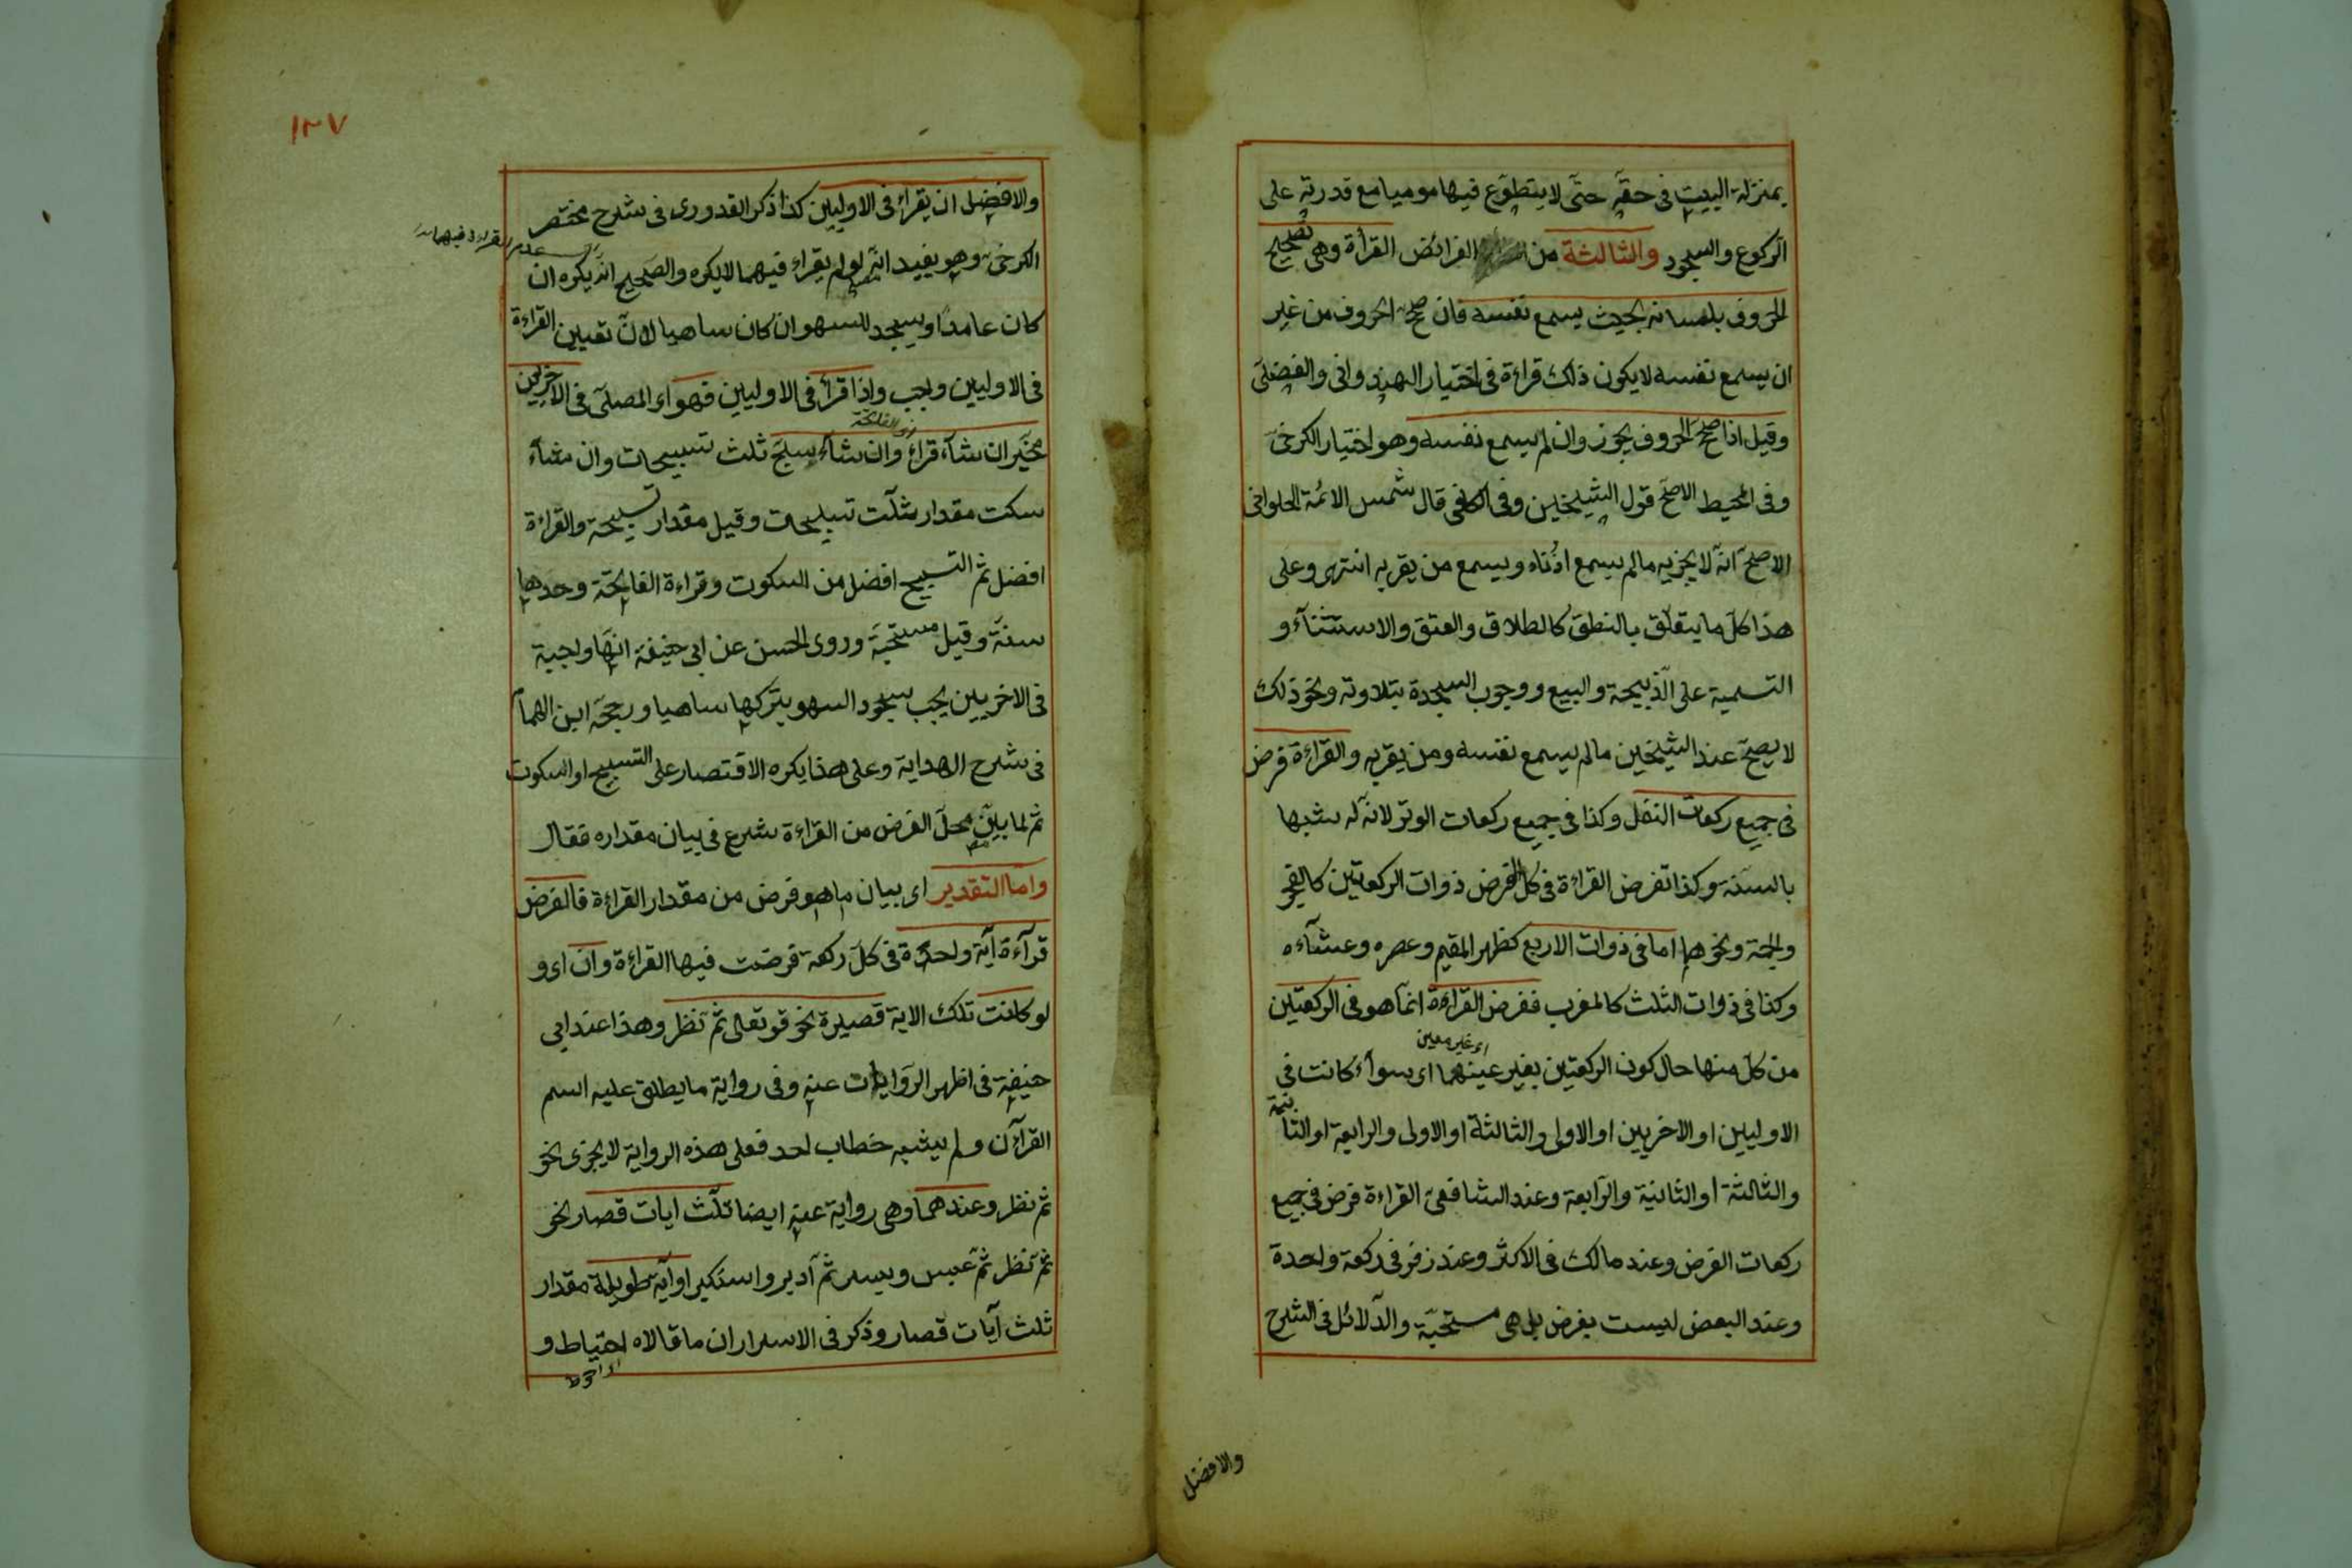 بمنزلة البيت في حقه حتى لا يتطوع فيها موميا مع قدرته على
الركوع والسجود والثالثة من الفرائض القرأة وهى تصحيح
الحروف بلسانه بحيث يسمع نفسه فان صحح الحروف من غير
ان يسمع نفسه لا يكون ذلك قراءة في اختيار الهندوانى والفضلى
وقيل اذا صحح الحروف يجوز وان لم يسمع نفسه وهو اختيار الكرخى
وفى المحيط الاصح قول الشيخين وفى الكافى قال شمس الائمة الحلوانى
الاصح انه لا يجزيه ما لم يسمع اذناه ويسمع من يقربه انتهى وعلى
هذا كل ما يتعلق بالنطق كالطلاق والعتق والاستثناء و
التسمية على الذبيحة والبيع ووجوب السجدة بتلاوته ونحو ذلك
لا يصح عند الشيخين ما لم يسمع نفسه ومن يقربه والقراءة فرض
فى جميع ركعات النفل وكذا فى جميع ركعات الوتر لانه له شبها
بالسنة وكذا تفرض القراءة فى كل الفرض ذوات الركعتين كالفجر
والجمة ونحوهما اما فى ذوات الاربع كظهر المقيم وعصره وعشآءه
وكذا فى ذوات الثلث كالمغرب ففرض القراءة انما هو فى الركعتين
اى غير معين
من كل منها حال كون الركعتين بغير عينهما اى سوآء كانت فى
الاوليين او الاخريين او الاولى والثالثة او الاولى والرابعة او الثانية
والثالثة او الثانية والرابعة وعند الشافعى القراءة فرض فى جميع
ركعات الفرض وعند مالك فى الاكثر وعند زفر فى ركعة واحدة
وعند البعض ليست بفرض بل هى مستحبة والدلائل فى الشرح
والافضل
١٣٧
والافضل ان يقراء فى الاوليين كذا ذكر القدورى فى شرح مختصر
الكرخى وهو يفيد انه لو لم يقراء فيهما لا يكره والصحيح انه يكره ان
عدم القراءة فيهما
كان عامدا ويسجد للسهو ان كان ساهيا لان تعيين القراءة
فى الاوليين واجب واذا قرأ فى الاوليين فهو اى المصلى فى الاخريين
اى الفاتحة
مخير ان شآء قراء وان شآء سبح ثلث تسبيحات وان شآء
سكت مقدار ثلث تسبيحات وقيل مقدار تسبيحة والقراءة
افضل ثم التسبيح افضل من السكوت وقراءة الفاتحة وحدها
سنة وقيل مستحبة وروى الحسن عن ابى حنيفة انها واجبة
فى الاخريين يجب سجود السهو بتركها ساهيا ورجحه ابن الهمام
فى شرح الهداية وعلى هذا يكره الاقتصار على التسبيح او السكوت
ثم لما بين محل الفرض من القراءة شرع فى بيان مقداره فقال
واما التقدير اى بيان ما هو فرض من مقدار القراءة فالفرض
قرآءة آية واحدة فى كل ركعة فرضت فيها القراءة وان اى و
لو كانت تلك الاية قصيرة نحو قوله تعالى ثم نظر وهذا عند ابى
حنيفة فى اظهر الروايات عنه وفى رواية ما يطلق عليه اسم
القرآن ولم يشبه خطاب احد فعلى هذه الرواية لا يجزى نحو
ثم نظر وعندهما وهى رواية عنه ايضا ثلث ايات قصار نحو
ثم نظر ثم عبس وبسر ثم ادبر واستكبر او آية طويلة مقدار
ثلث آيات قصار وذكر فى الاسرار ان ما قالاه احتياط و